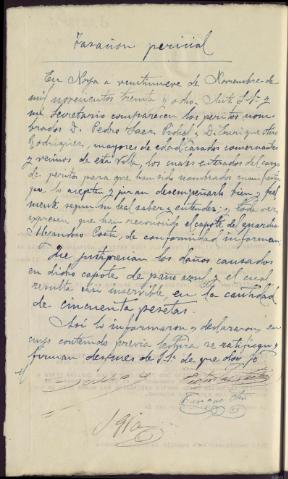 Tasación pericial
En Rioja a veintinueve de Noviembre de
mil novecientos treinta y ocho. Ante S.Sª y
mi Secretario comparecen los peritos nom-
brados D. Pedro y D. Enrique
Rodriguez, mayores de edad, casados
y vecinos de esta Villa, los cuales enterados del cargo
de peritos para que han sido nombrados manifiestan
que lo aceptan y juran desempeñarlo bien y fiel-
mente segun su leal saber y entender; y, toda vez
expresan que han reconocido el capote del guardia
Alejandro de conformidad informan
Que justiprecian los daños causados
en dicho capote de paño azul, y el cual
resulta en la cantidad
de cincuenta pesetas.
Asi lo informaron y declararon, en
cuyo contenido previa lectura se ratifican y
firman despues de S.Sª de que doy fé
Enrique